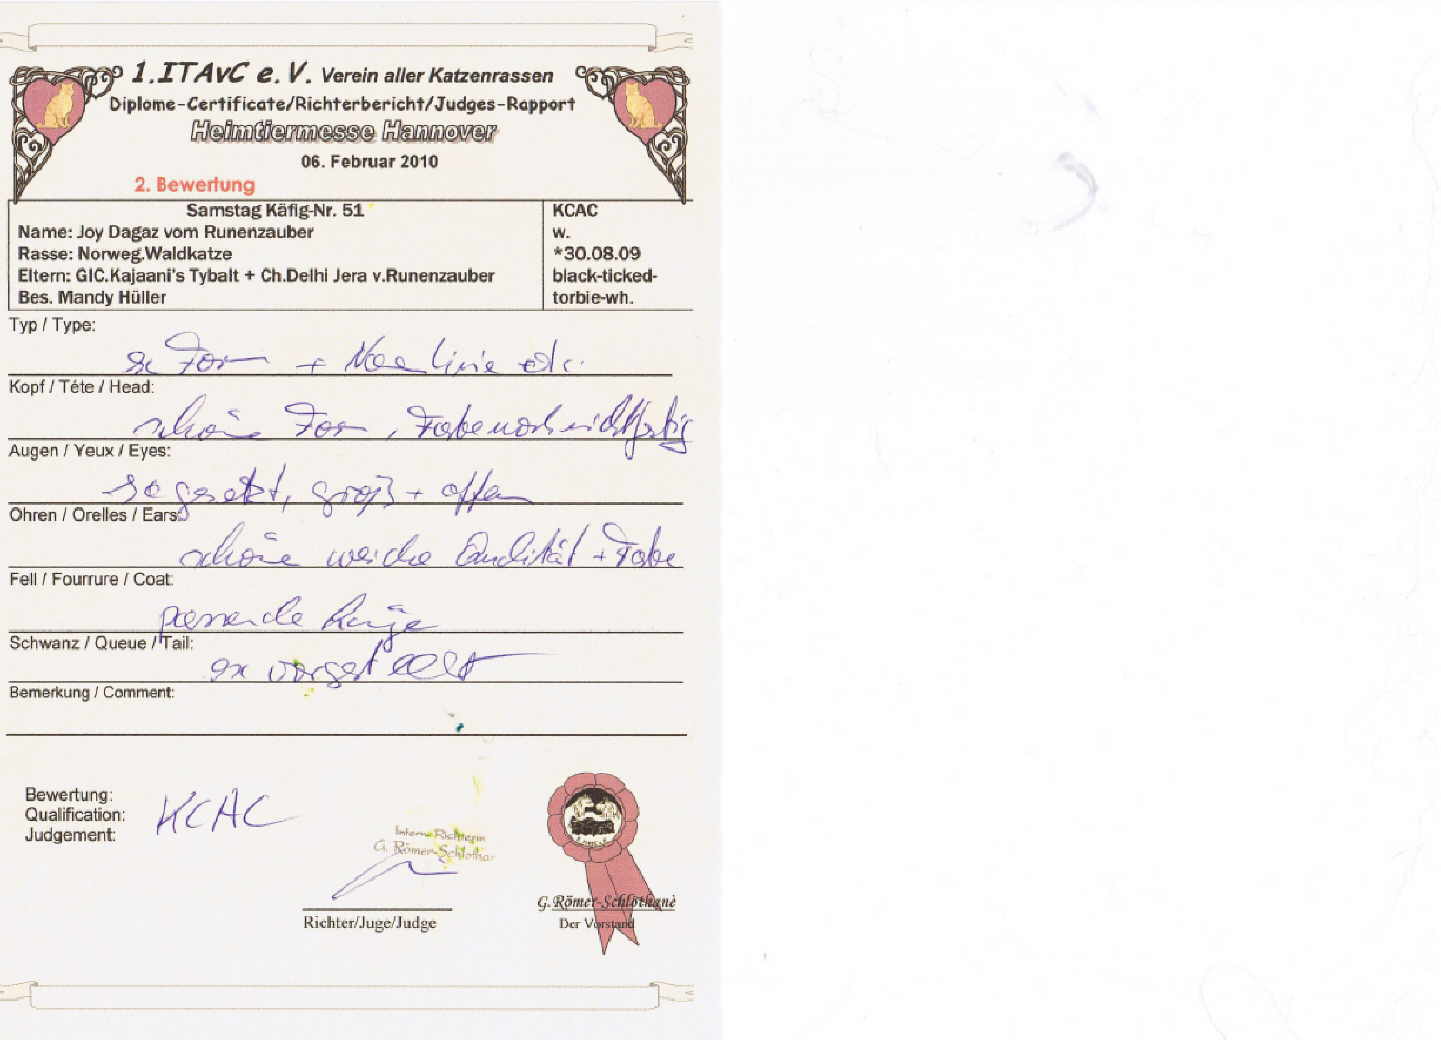 1.ITAvC e.V. Verein aller Katzenrassen
Diplome-Certificate/Richterbericht/Judges-Rapport
Heimtiermesse Hannover
06. Februar 2010
2. Bewertung
Samstag Käfig-Nr. 51 KCAC
Name: Joy Dagaz vom Runenzauber w.
Rasse: Norweg.Waldkatze *30.08.09
Eltern: GIC.Kajaani's Tybalt + Ch.Delhi Jera v.Runenzauber black-ticked-
Bes. Mandy Hüller torbie-wh.
Typ / Type:
+
Kopf / Téte / Head:
schöne Form,
Augen / Yeux / Eyes:
gesetzt, groß + offen
Ohren / Orelles / Ears:
schöne weiche Qualität + Farbe
Fell / Fourrure / Coat:
passende Länge
Schwanz / Queue / Tail:
ex vorgestellt
Bemerkung / Comment:
Bewertung:
Qualification: KCAC
Judgement:
Interne Richterin
G. Römer-Schlothan
Richter/Juge/Judge
G. Römer-Schlothanè
Der Vorstand